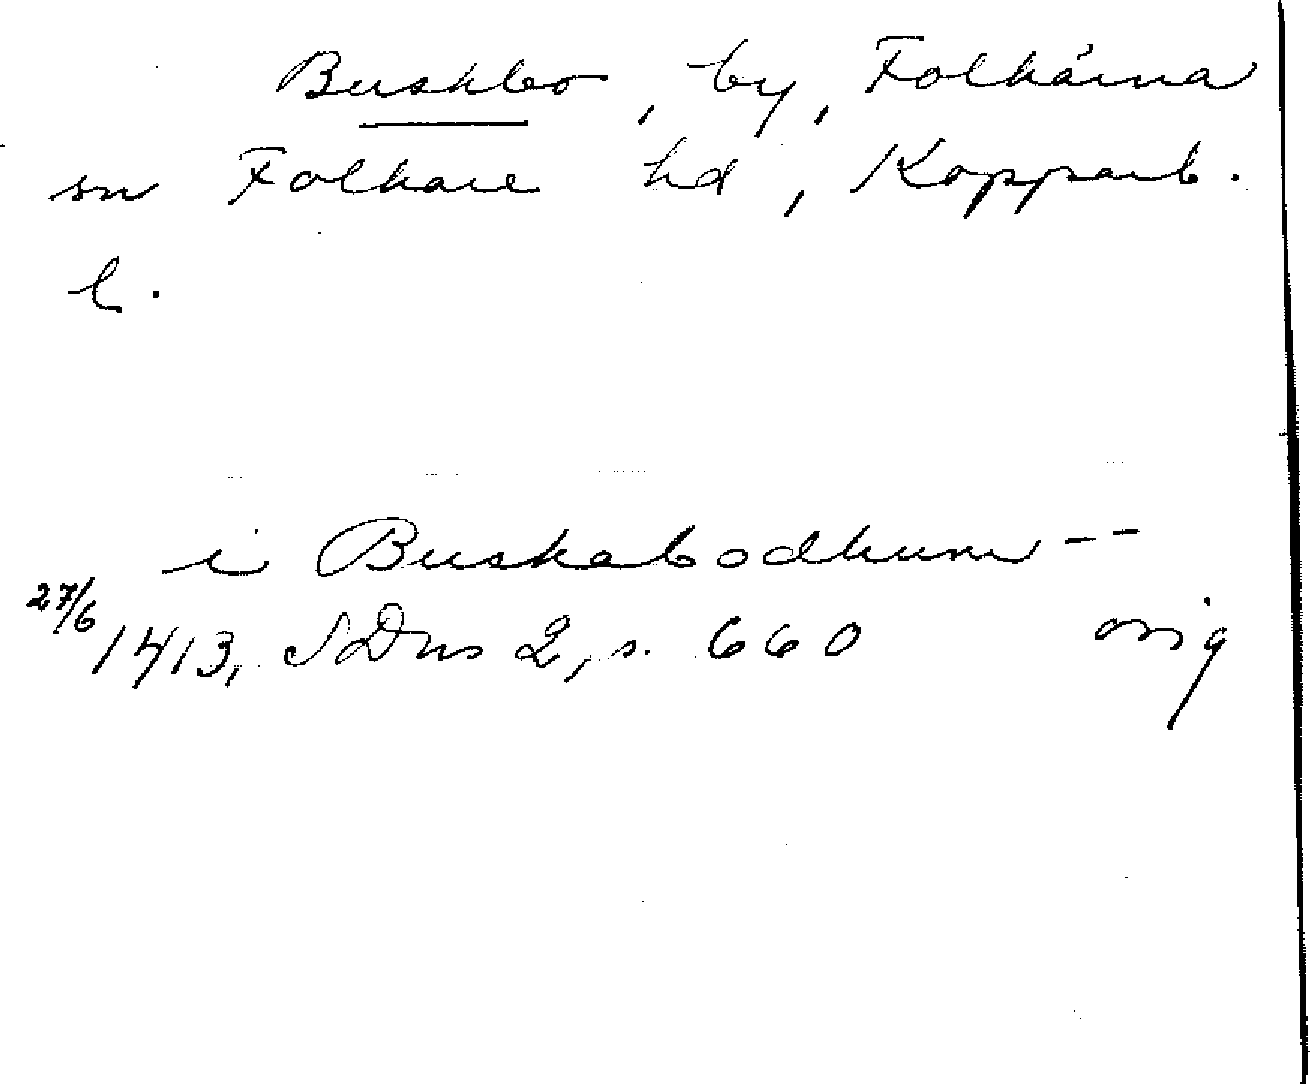 Buskbo, by, Folkärna
sn Folkare hd, Kopparb.
l.
i Buskabodhum --
27/6 1413, SDns 2, s. 660 orig